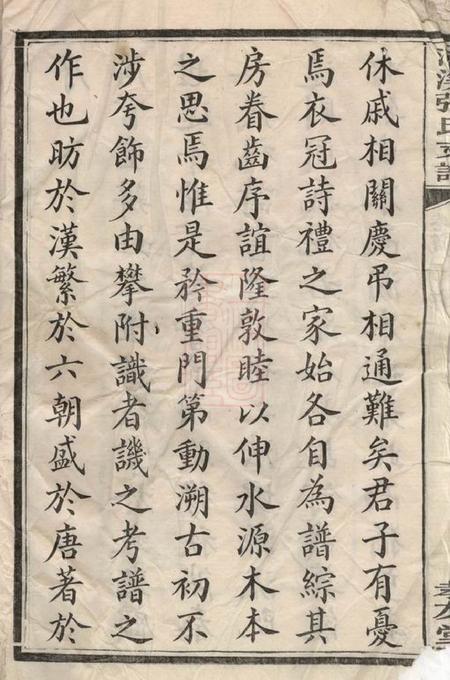 休戚相關慶吊相通難矣君子有憂
焉衣冠詩禮之家始各自為譜綜其
房眷齒序誼隆敦睦以伸水源木本
之思焉惟是矜重門第動溯古初不
涉夸飾多由攀附識者譏之考譜之
作也昉於漢繁於六朝盛於唐著於